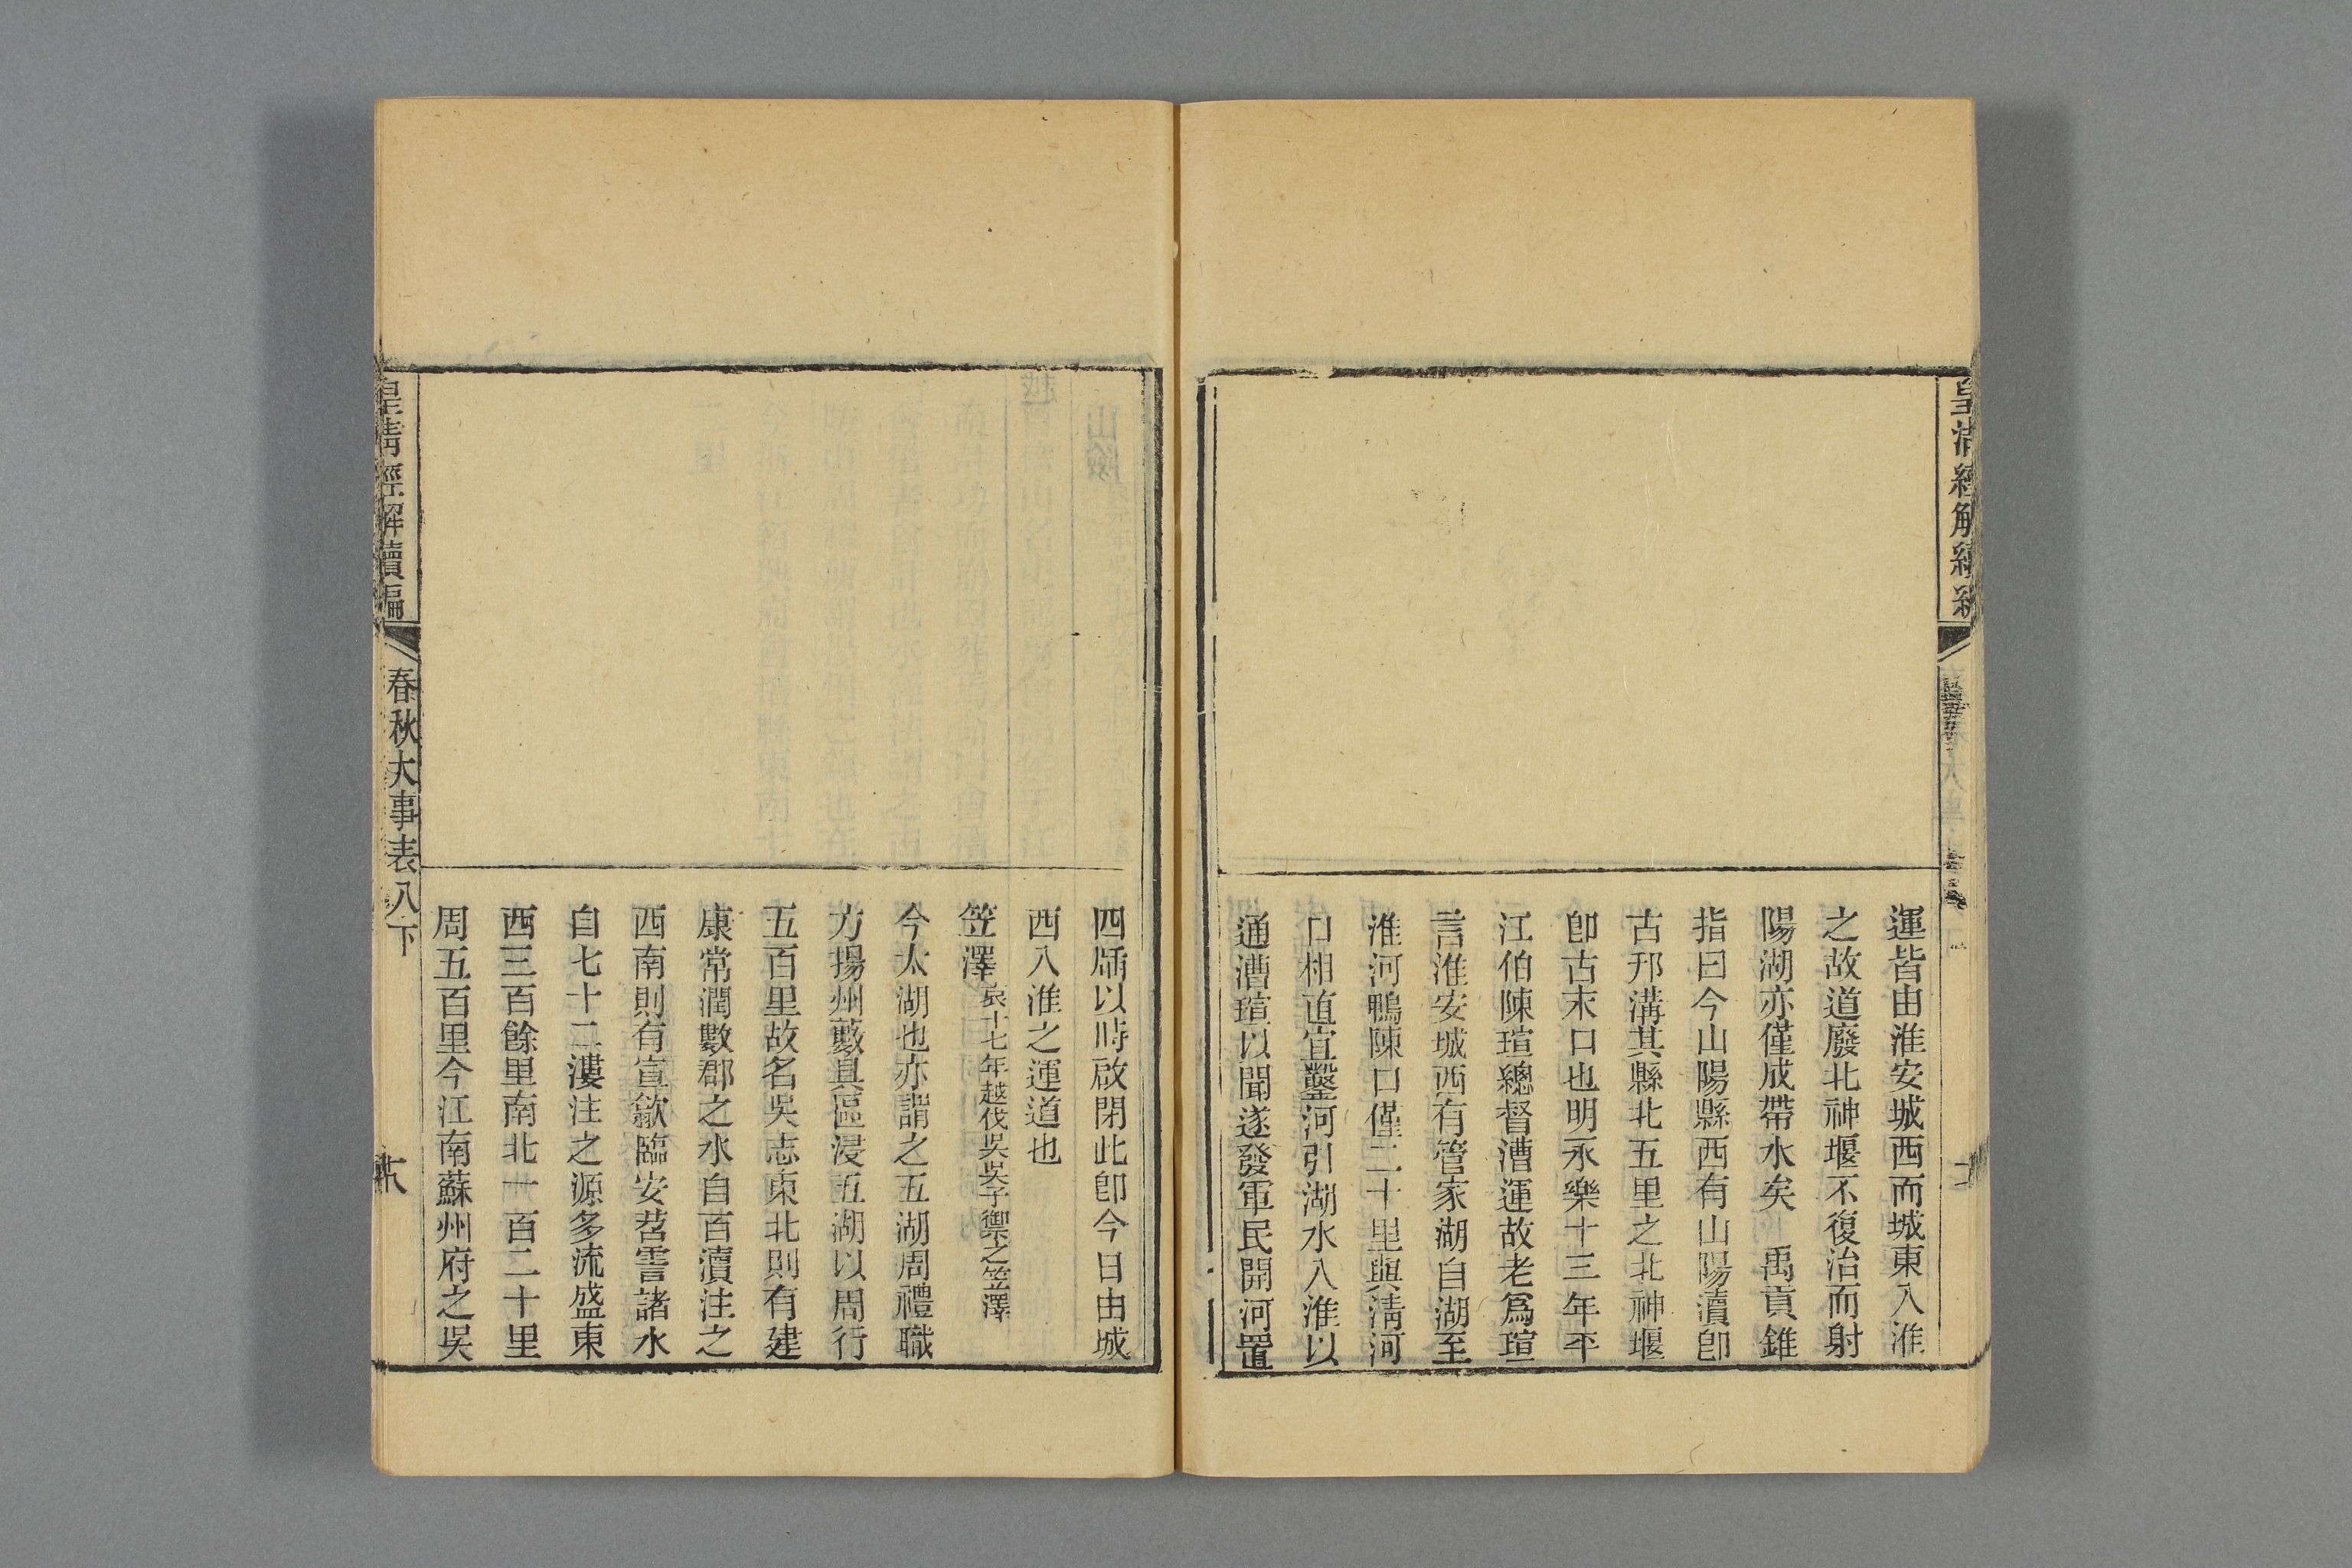 運皆由淮安城西而城東入淮
之故道廢北神堰不復治而射
陽湖亦僅成帶水矣 禹貢錐
指曰今山陽縣西有山陽瀆卽
古邗溝其縣北五里之北神堰
卽古末口也明永樂十三年平
江伯陳瑄總督漕運故老爲瑄
言淮安城西有管家湖湖自湖至
淮河鴨陳口僅二十里與淸河
口相直宜鑿河引湖水入淮以
通漕瑄以聞遂發軍民開河置
四牐以時啟閉此卽今日由城
西入淮之運道也
笠澤哀十七年越伐吳吳子禦之笠澤
今太湖也亦謂之五湖周禮職
方揚州藪具區浸五湖以周行
五百里故名吳志東北則有建
康常潤數郡之水自百瀆注之
西南則有宣歙臨安苕霅諸水
自七十二漊注之源多流盛東
西三百餘里南北一百二十里
周五百里今江南蘇州府之吳
皇清經解續編
春秋大事表八下